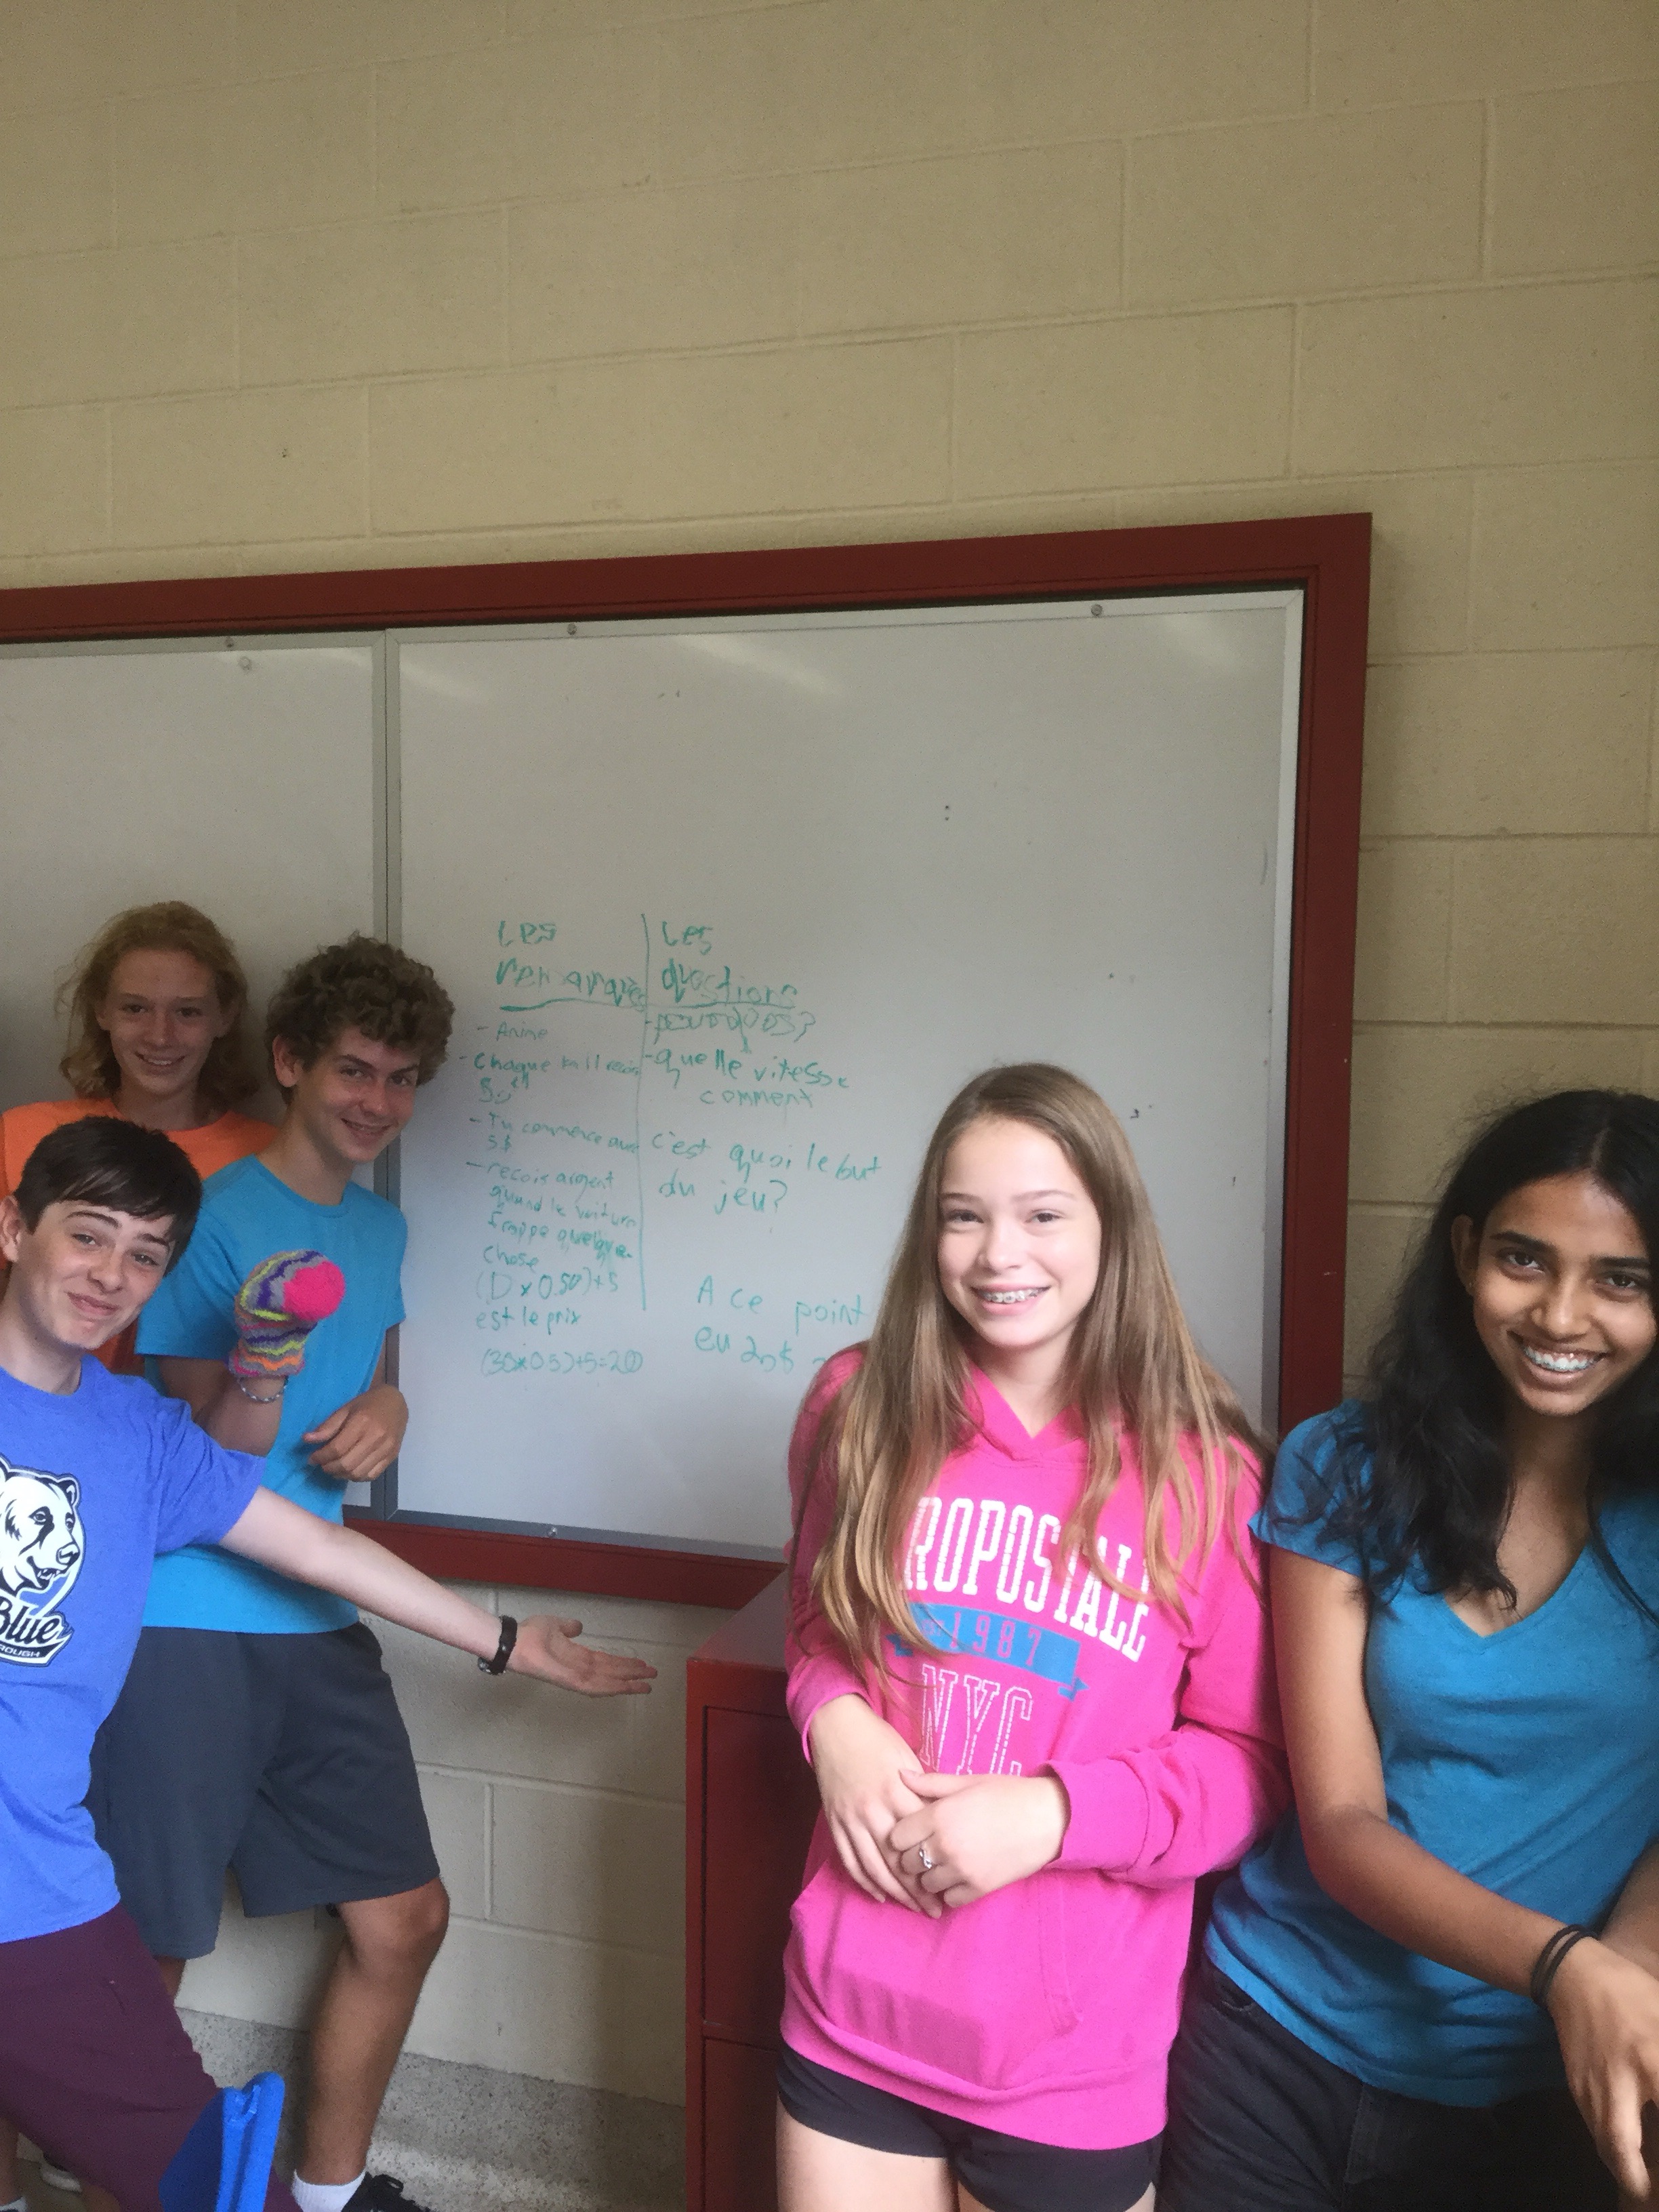 Les
remarques
- Anime
- Chaque kill reçois
50¢
- Tu commence avec
5$
- recois argent
quand le voiture
frappe quelque
chose
(D x 0.50)+5
est le prix
(30x0.5)+5=20
Les
questions
- pourquois?
- quelle vitesse
comment
c'est quoi le but
du jeu?
A ce point
eu 20$
Blue
ROUGH
ROPOSTALE
1987
NYC